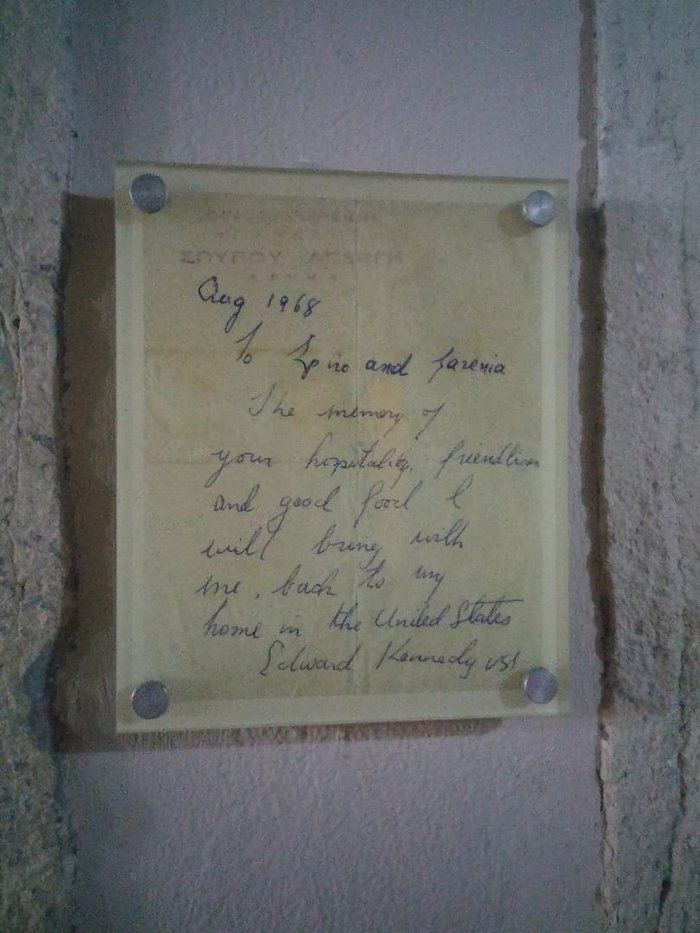 Aug 1968
To Spiro and
The memory of
your hospitality, friendliness
and good food I
will bring with
me, back to my
home in the United States
Edward Kennedy USA